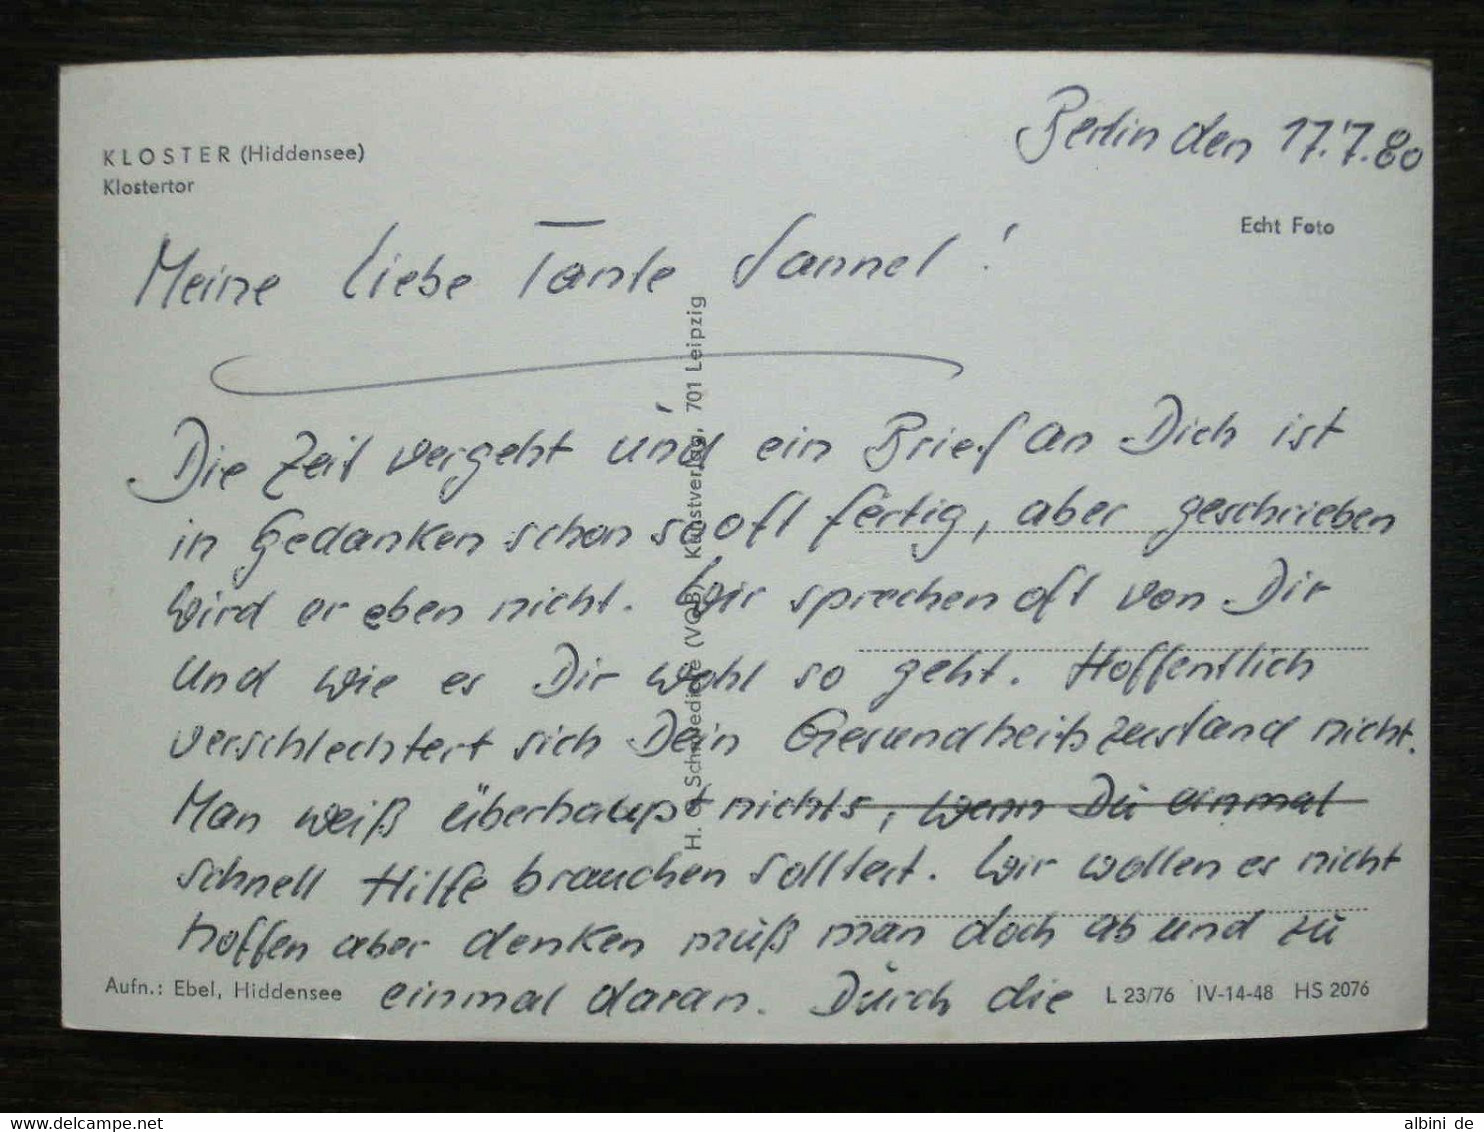 KLOSTER (Hiddensee)
Klostertor
Berlin den 17.7.80
Echt Foto
Meine liebe Tante Sannel!
Die Zeit vergeht und ein Brief an Dich ist
in Gedanken schon so oft fertig, aber geschrieben
wird er eben nicht. Wir sprechen oft von Dir
und wie es Dir wohl so geht. Hoffentlich
verschlechtert sich Dein Gesundheitszustand nicht.
Man weiß überhaupt nichts, wenn Du einmal
schnell Hilfe brauchen solltest. Wir wollen es nicht
hoffen aber denken muß man doch ab und zu
einmal daran. Durch die
H. C. Schmiedicke (VOB), Kunstverlag, 701 Leipzig
Aufn.: Ebel, Hiddensee
L 23/76 IV-14-48 HS 2076
albini de